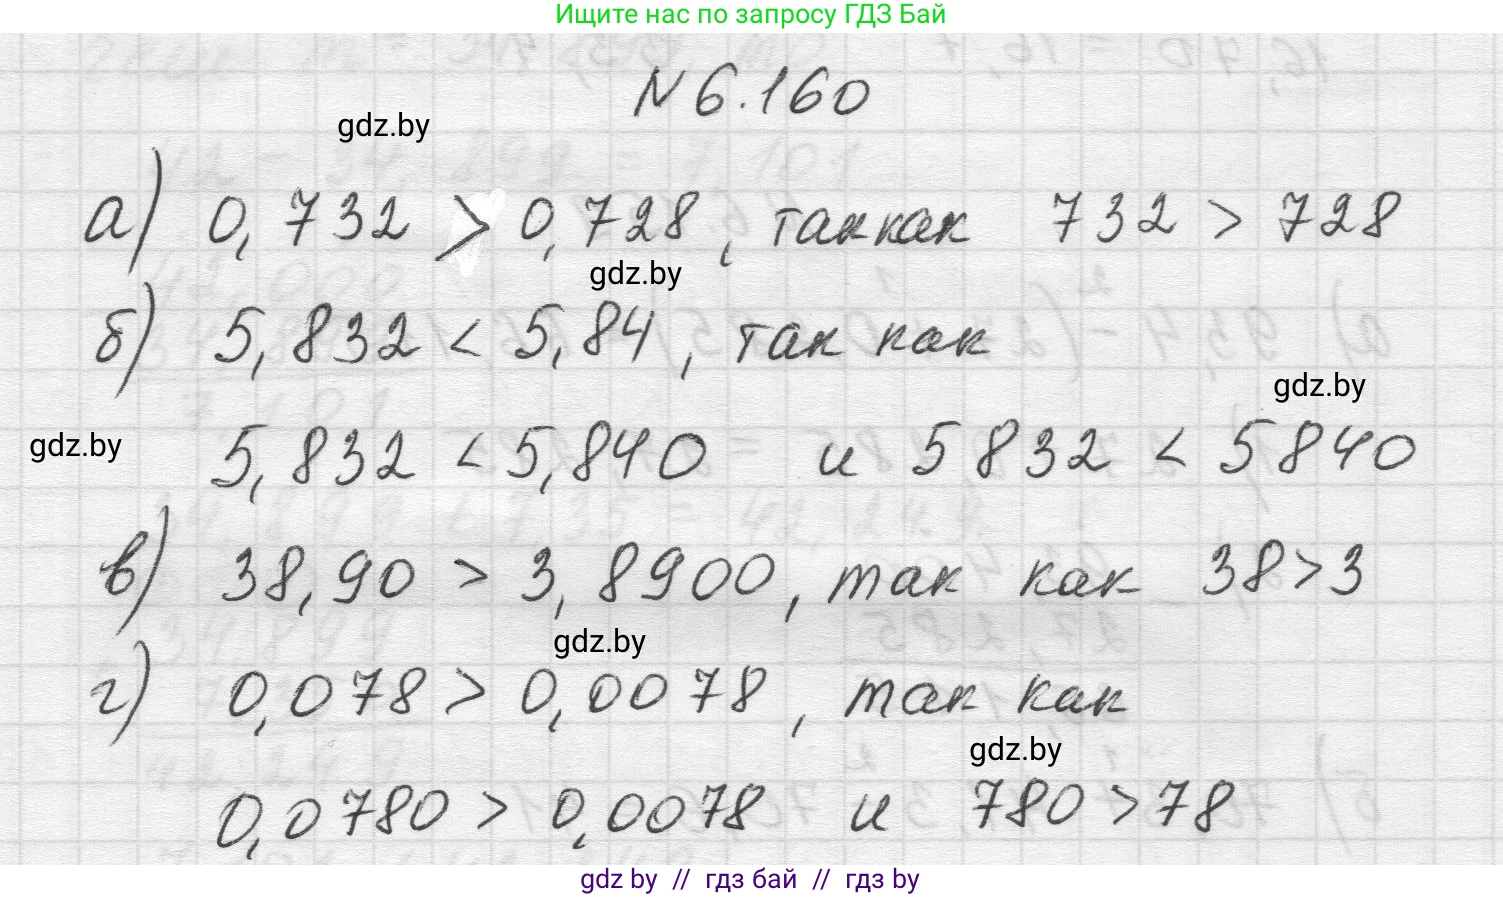 Ищите нас по запросу ГДЗ Бай
№ 6.160
gdz.by
а) 0,732 > 0,728, так как 732 > 728
gdz.by
б) 5,832 < 5,84, так как
gdz.by
gdz.by
5,832 < 5,840 и 5832 < 5840
в) 38,90 > 3,8900, так как 38 > 3
gdz.by
г) 0,078 > 0,0078, так как
gdz.by
0,0780 > 0,0078 и 780 > 78
gdz by // гдз бай // гдз by